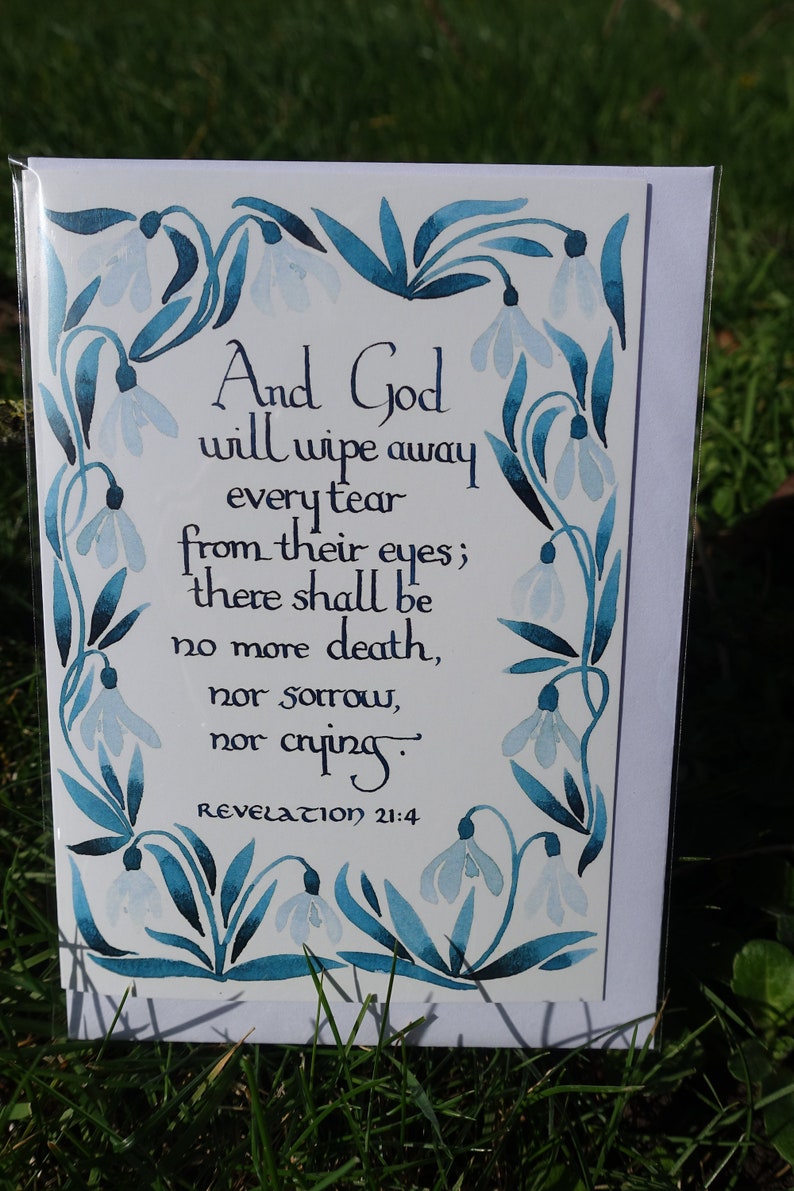 And God
will wipe away
every tear
from their eyes;
there shall be
no more death,
nor sorrow,
nor crying.
REVELATION 21:4